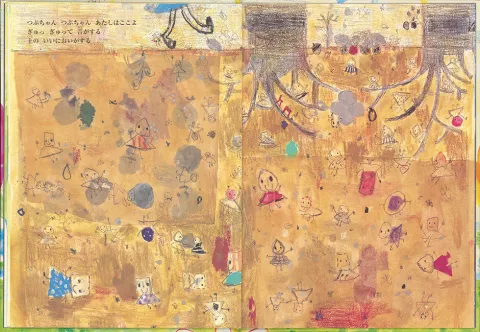 つぶちゃん つぶちゃん あたしはここよ
ぎゅっ ぎゅって 音がする
土の いいにおいがする